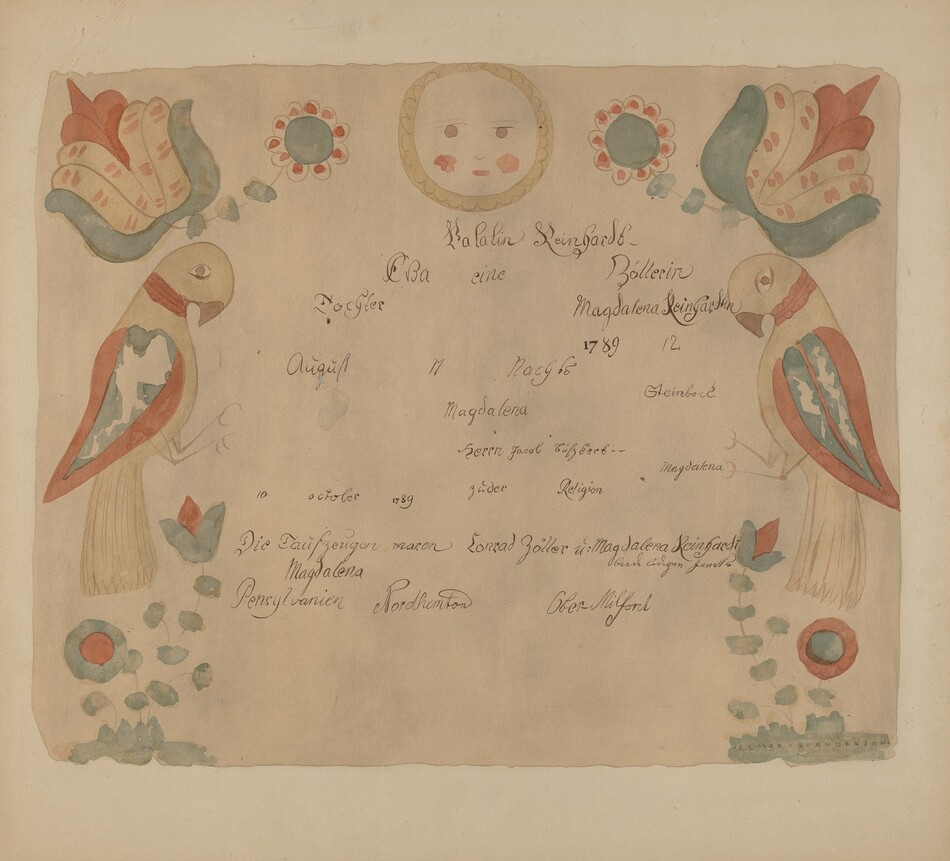 Valatin Reinhardt-
Eva eine Zöllerin
Tochter Magdalena Reinhardtin
1789 12
August 17 Nachts
Steinbock
Magdalena
Herrn Jacob
Magdalena
10 october 1789 zu der Religion
Die Taufzeugen waren Conrad Zöller u: Magdalena Reinhardt
Magdalena
Pensylvanien Nordhamton Ober Milford
ELMER R ANDERSON